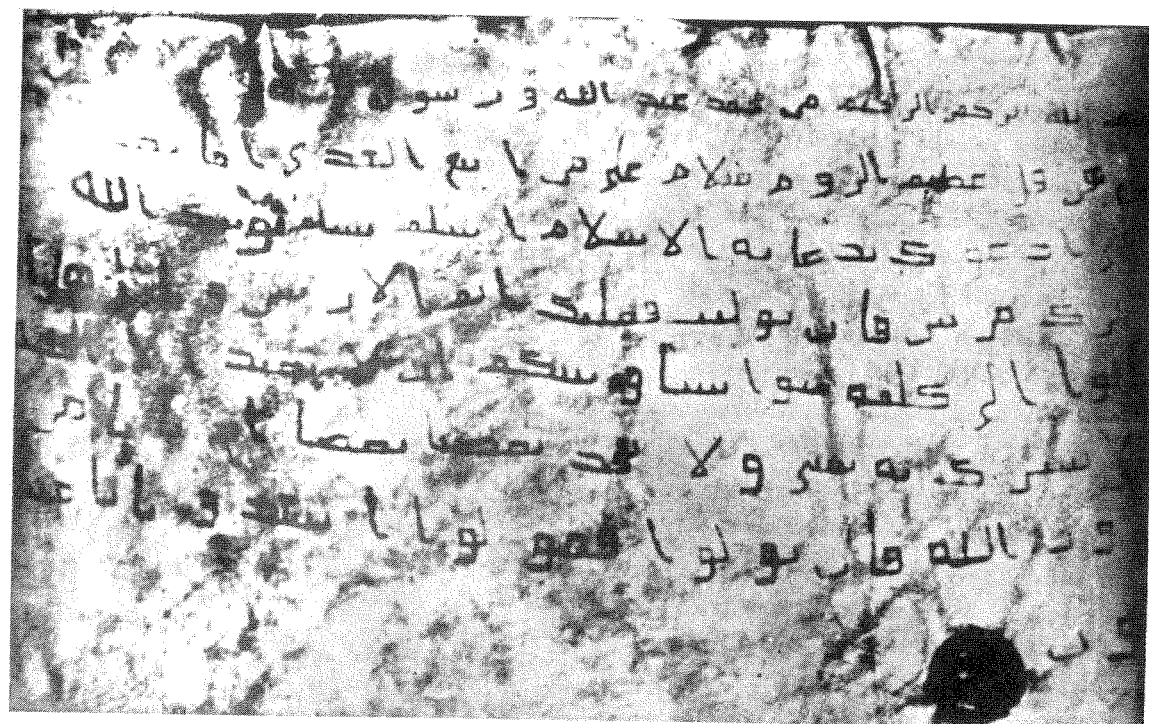 الله الرحمن الرحيم من محمد عبد الله و رسوله
هرقل عظيم الروم سلام على من اتبع الهدى اما بعد
ادعوك بدعاية الاسلام اسلم تسلم يوتك الله
مرتين فان توليت فعليك اثم الاريس
الى كلمة سوا بيننا وبينكم الا نعبد
نشرك به شي ولا يتخذ بعضنا بعضا
دون الله فان تولوا فقولوا اشهدوا بانا